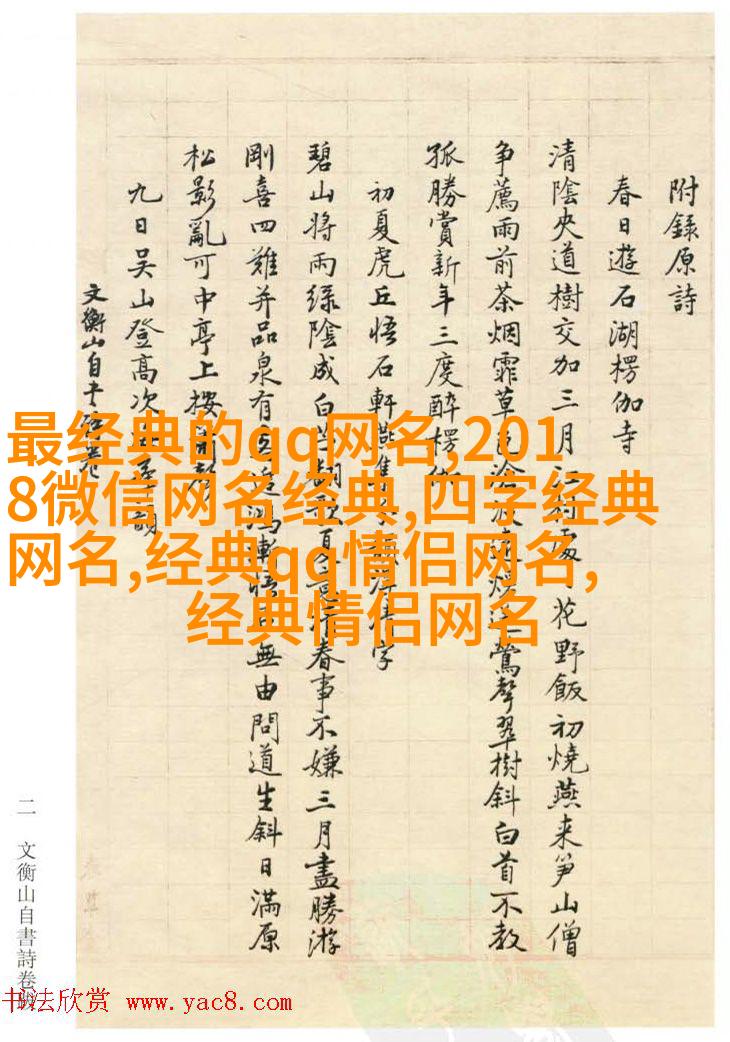 附錄原詩
春日遊石湖楞伽寺
清陰央道樹交加三月江村處花野飯初燒燕来笋山僧
争薦雨前茶烟霏草色滄鶯聲翠樹斜白首不教
孤勝賞新年三度醉楞伽
初夏虎丘悟石軒燕集字
碧山将雨緑陰成白歌夏春事不嫌三月盡勝游
剛喜四難并品泉有無由問道生斜日滿原
松影亂可中亭上按聲
九日吴山登高次韻
文衡山自卷
最经典的qq网名,201
8微信网名经典,四字经典
网名,经典qq情侣网名,
经典情侣网名
二 文衡山自書詩卷跋
书法欣赏 www.yac8.com